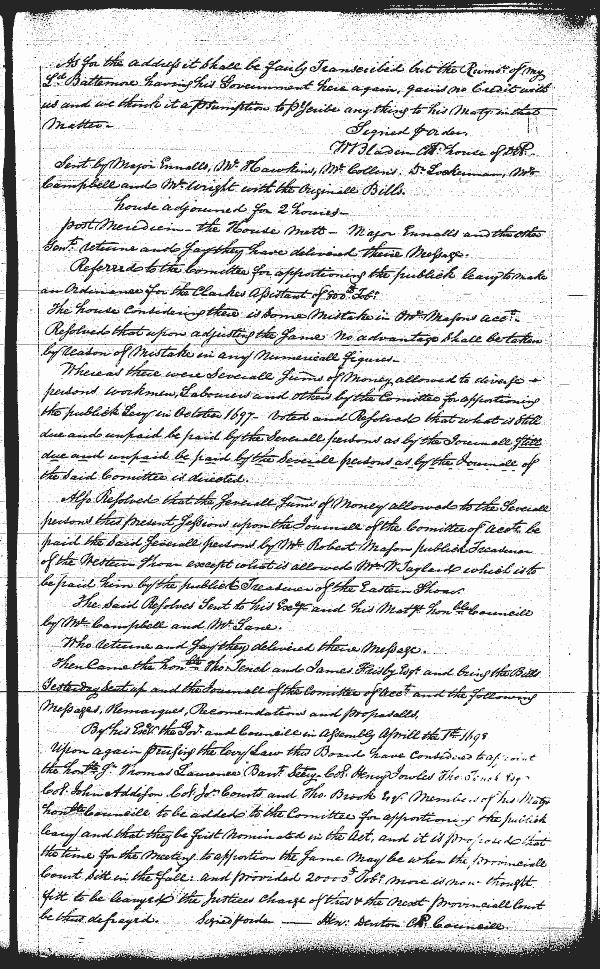 As for the address it shall be fairly Transcribed but the Rumor of my
Ld Baltemore having his Government here again, gains no Credit with
us and we think it a p̱sumption to p̱scribe any thing to his Maty in that
Matter.
Signed ꝑ order.
W Bladen Clk house of Del.
Sent by Major Ennalls, Mr Hawkins, Mr Collens, Dr Lockerman, Mr
Campbell and Mr Wright with the Originall Bills.
house adjourned for 2 houres.
post Meredeem - the House mett - Major Ennalls and the other
Gent returne and Say they have delivered theire Message.
Referred to the Comittee for apportioning the publick leavy to make
an Ordinance for the Clarkes Assistant of 800lb Tobo
The house Considering there is some Mistake in Mr Masons acct
Resolved that upon adjusting the same no advantage shall be taken
by reason of Mistake in any Numericall figures.
Whereas there were Severall Sums of Money allowed to diverse
persons workmen, Labourers and others by the Comittee for apportioning
the publick Levy in October 1697 - Voted and Resolved that what is still
due and unpaid be paid by the Severall persons as by the Journall still
due and unpaid be paid by the Severall persons as by the Journall of
the said Comittee is directed.
Also Resolved that the Severall Sums of Money allowed to the Severall
persons this present Sessions upon the Journall of the Comittee of accots be
paid the said Severall persons by Mr Robert Mason publick Treasurer
of the Western Shore except what is allowed Mr W Taylard which is to
be paid him by the publick Treasurer of the Eastern Shore.
The said Resolves Sent to his Exncy and his Matys honble Councill
by Mr Campbell and Mr Lane.
Who returne and Say they delivered theire Message.
Then Came the honble Tho: Tench and James Frisby Esqr and bring the Bills
Yesterday Sent up and the Journall of the Comittee of Acct and the following
Messages, Remarques, Recomendations and proposalls.
By his Exncy the Govr and Councill in Assembly Aprill the 1st 1698
Upon again p̱using the Levy Law this Board have considered to appoint
the honble Sr Thomas Laurence Bart Secry Col. Henry Jowles Tho: Tench Esqr
Col. John Addison Col. Jno Courts and Tho: Brook Esqr Members of his Matys
honble Councill, to be added to the Comittee for apportioning the publick
leavy and that they be first Nominated in the Act, and it is proposed that
the time for the Meeting to apportion the Same may be when the Provinciall
Court Sitt in the fall: and provided 20000lb Tobo more is now thought
fitt to be leavyed the Justices charge of this & the next provinciall Court
be thus defrayed. Signed ꝑ order — Hen: Denton Clk Councill